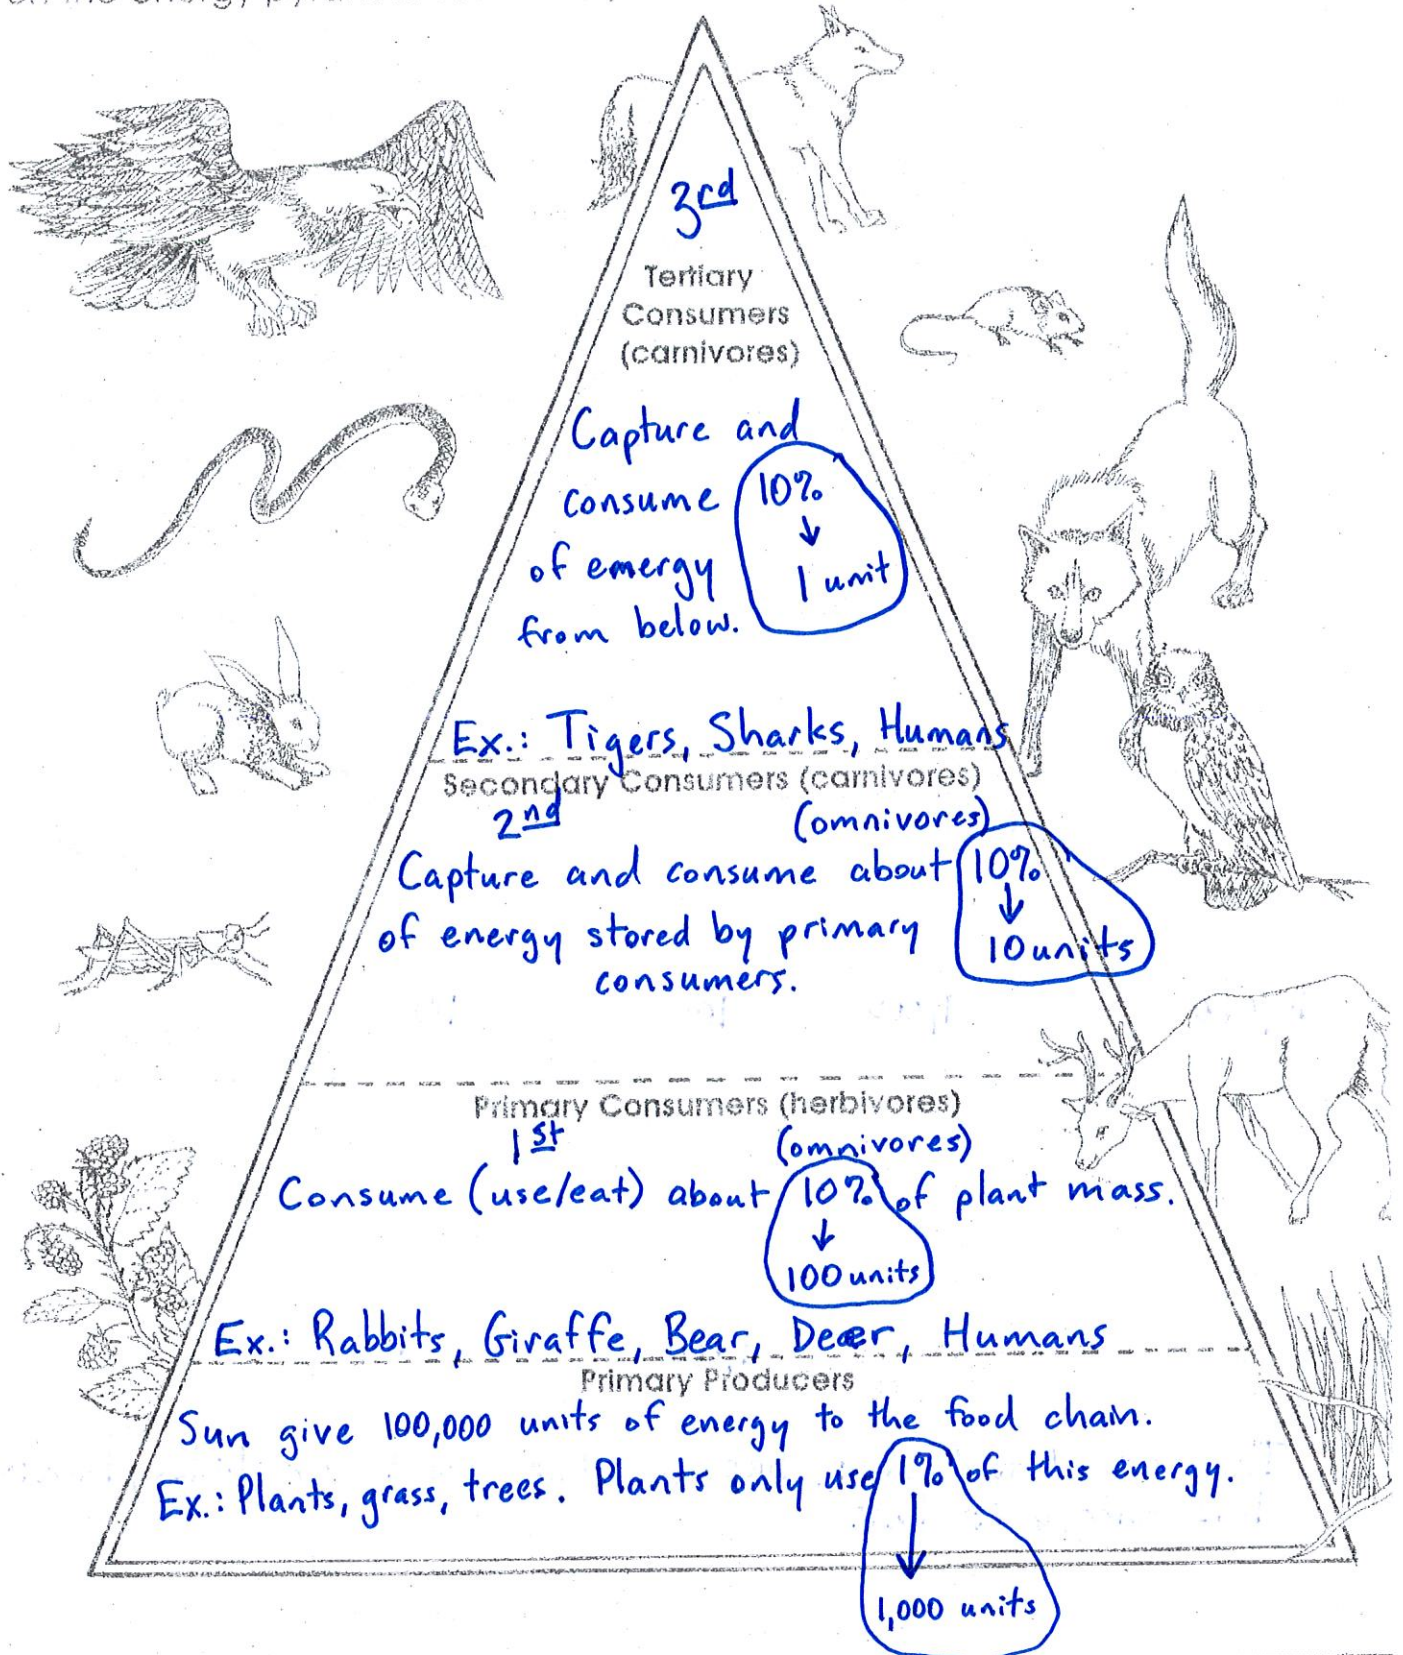 on the energy
3rd
Tertiary
Consumers
(carnivores)
Capture and
consume 10%
↓
of emergy 1 unit
from below.
Ex.: Tigers, Sharks, Humans
Secondary Consumers (carnivores)
2nd (omnivores)
Capture and consume about 10%
↓
of energy stored by primary 10 units
consumers.
Primary Consumers (herbivores)
1st (omnivores)
Consume (use/eat) about 10% of plant mass.
↓
100 units
Ex.: Rabbits, Giraffe, Bear, Deer, Humans
Primary Producers
Sun give 100,000 units of energy to the food chain.
Ex.: Plants, grass, trees. Plants only use 1% of this energy.
↓
1,000 units